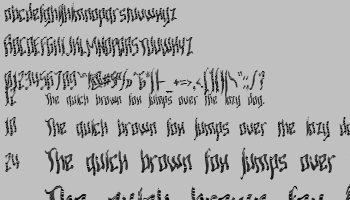 abcdefghijklmnopqrstuvwxyz
ABCDEFGHIJKLMNOPQRSTUVWXYZ
12 The quick brown fox jumps over the lazy dog.
18 The quick brown fox jumps over the lazy do
24 The quick brown fox jumps over
The quick brown fox j